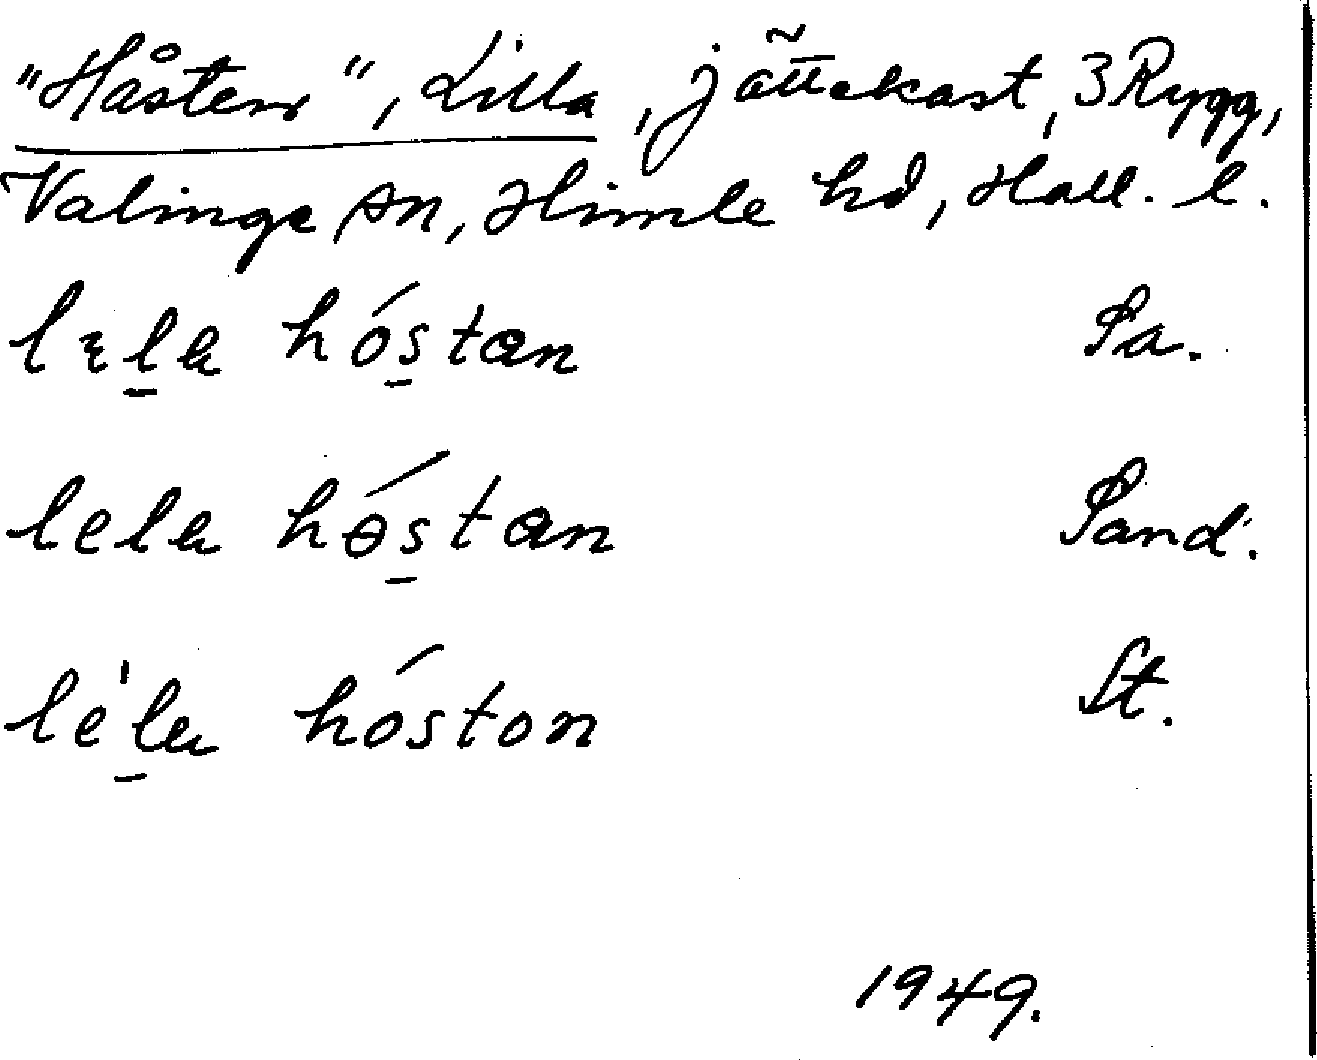 "Håsten", Lilla, jättekast, 3 Rygg,
Valinge sn, Himle hd, Hall. l.
lɛla hóstan Sa.
lela hóstan Sand.
le'la hóston St.
1949.